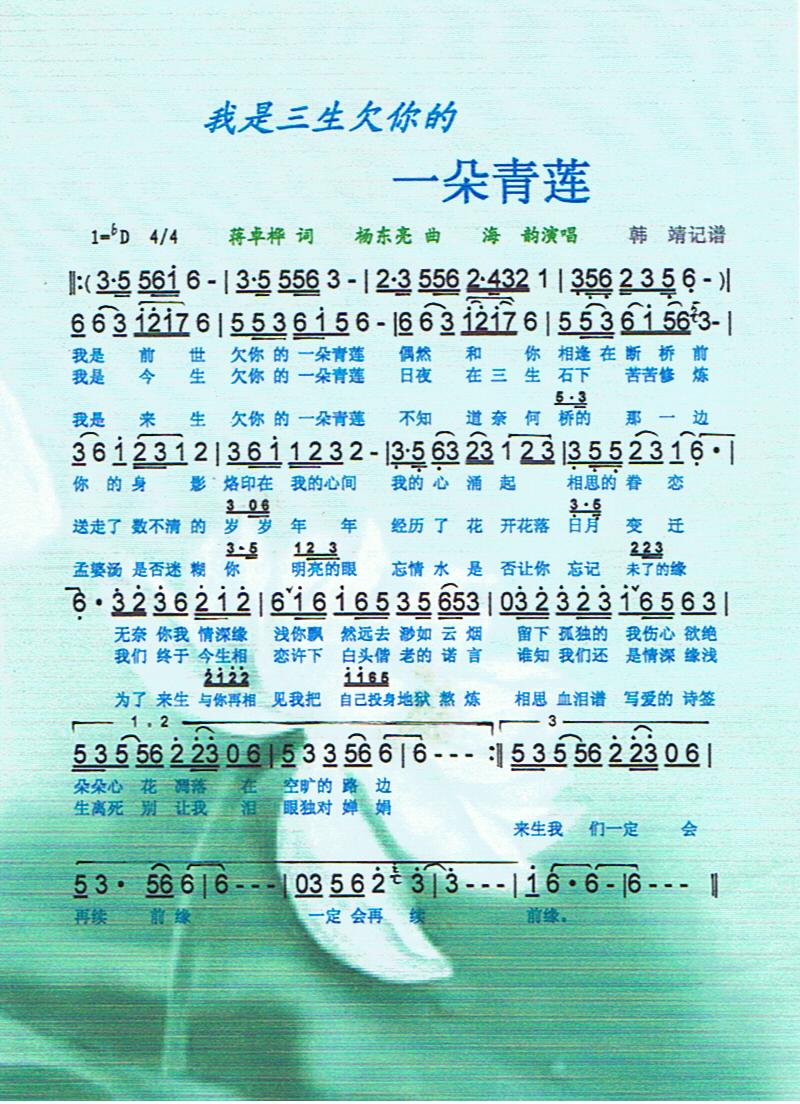 我是三生欠你的
一朵青莲
1=♭D 4/4 蒋卓桦 词 杨东亮 曲 海 韵演唱 韩 靖记谱
‖:( 3·5 561 6 - | 3·5 556 3 - | 2·3 556 2·432 1 | 356 2 3 5 6 - )|
6 6 3 1217 6 | 5 5 3 6 1 5 6 - | 6 6 3 1217 6 | 5 5 3 6 1 56 3 - |
我是 前 世 欠你 的 一朵青莲 偶然 和 你 相逢 在 断 桥 前
我是 今 生 欠你 的 一朵青莲 日夜 在 三 生 石下 苦苦修 炼
5·3
我是 来 生 欠你 的 一朵青莲 不知 道 奈 何 桥的 那 一 边
3 6 1 2312 | 3611 1232 - | 3·5 63 23 1 23 | 3 5 5 23 1 6· |
你 的 身 影 烙印在 我的心间 我的 心 涌 起 相思的 眷 恋
3 06 3·5
送走了 数不清 的 岁 岁 年 年 经历 了 花 开花落 日月 变 迁
3·5 12 3 223
孟婆汤 是否迷 糊 你 明亮的眼 忘情 水 是 否让你 忘记 未了的缘
6· 3 2 3 6 2 1 2 | 6 1 6 1 6 5 3 5 653 | 03 2 3 2 3 1 6 5 6 3 |
无奈 你我 情深缘 浅你飘 然远去 渺如 云 烟 留下 孤独的 我伤心 欲绝
我们 终于 今生相 恋许下 白头偕 老的 诺 言 谁知 我们还 是情深 缘浅
2122 1165
为了 来生 与你再相 见我把 自己投身地狱 熬 炼 相思 血泪谱 写爱的 诗签
1 , 2 3
5 3 5 56 2 23 0 6 | 5 3 3 56 6 | 6 - - - :‖ 5 3 5 56 2 23 0 6 |
朵朵心 花 凋落 在 空旷的 路 边
生离死 别 让我 泪 眼独对 婵 娟
来生我 们一定 会
5 3· 56 6 | 6 - - - | 03 5 6 2 3 | 3 - - - | 1 6· 6 - | 6 - - - ‖
再续 前缘 一定 会再 续 前缘。